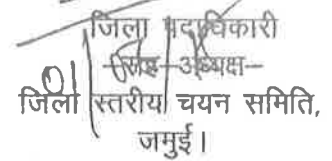 जिला पदाधिकारी
सह अध्यक्ष
जिला स्तरीय चयन समिति,
जमुई।